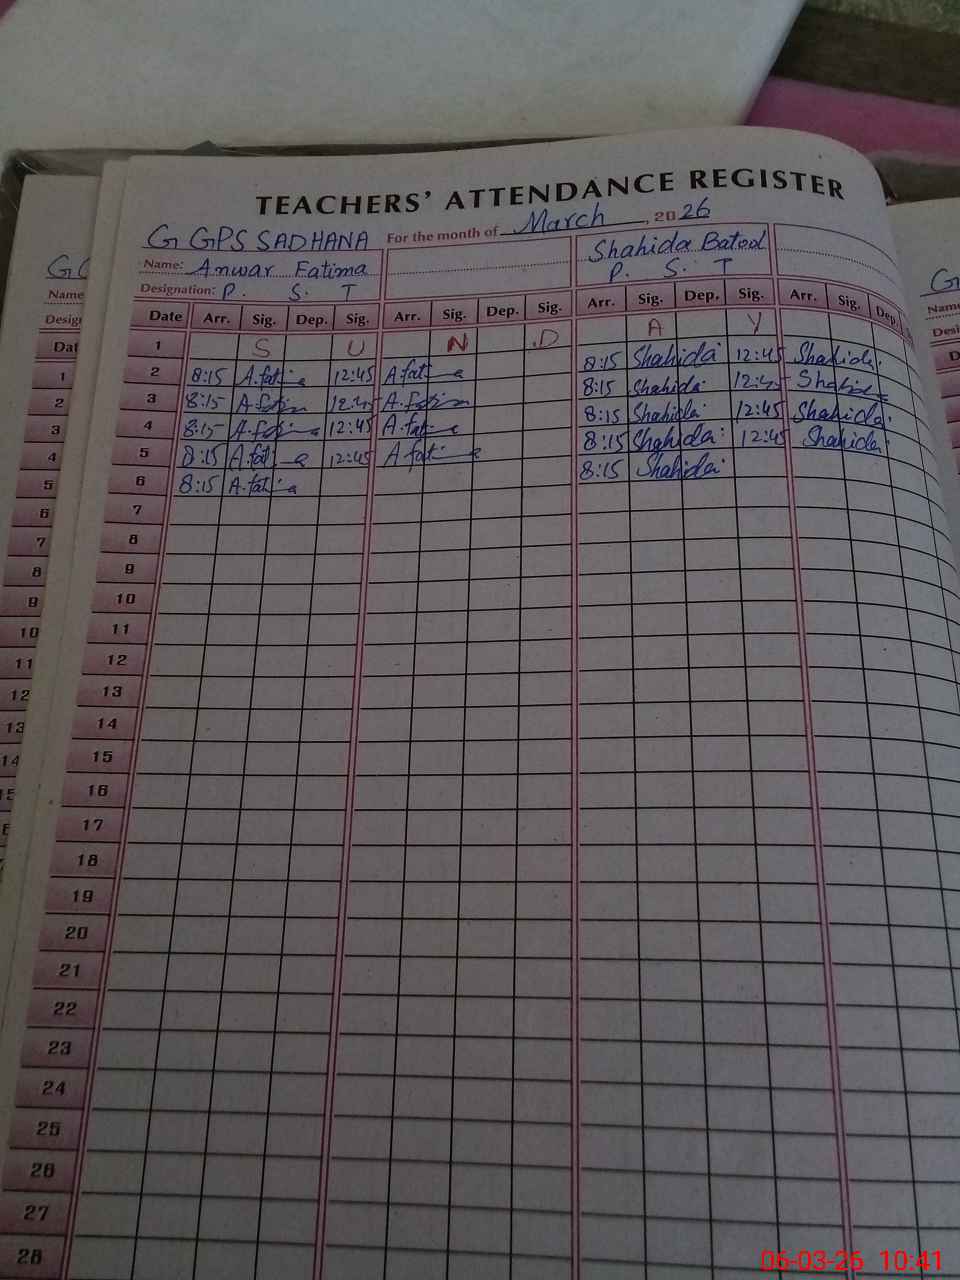 TEACHERS' ATTENDANCE REGISTER
G GPS SADHANA For the month of March, 2026
Name: Anwar Fatima Shahida Batool
Designation: P. S. T P. S. T
Date Arr. Sig. Dep. Sig. Arr. Sig. Dep. Sig. Arr. Sig. Dep. Sig. Arr. Sig. Dep.
1 S U N .D A Y
2 8:15 A.fatima 12:45 A.fatima 8:15 Shahida 12:45 Shahida.
3 8:15 A.fatima 12:45 A.fatima 8:15 Shahida. 12:45 Shahida
4 8:15 A.fatima 12:45 A.fatima 8:15 Shahida. 12:45 Shahida.
5 8:15 A.fatima 12:45 A.fatima 8:15 Shahida. 12:45 Shahida.
6 8:15 A.fatima 8:15 Shahida.
7
8
9
10
11
12
13
14
15
16
17
18
19
20
21
22
23
24
25
26
27
28
06-03-26 10:41